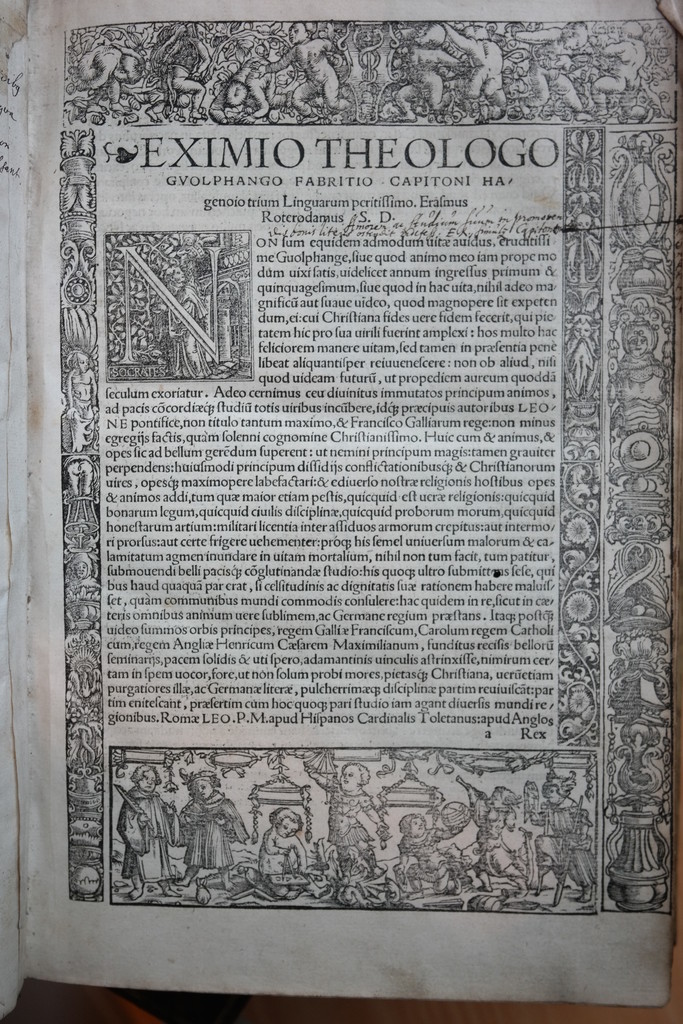 EXIMIO THEOLOGO
GVOLPHANGO FABRITIO CAPITONI HA/
genoio trium Linguarum peritissimo. Erasmus
Roterodamus S. D.
NON sum equidem admodum uitæ auidus, eruditissi
me Guolphange, siue quod animo meo iam prope mo
dũm uixi satis, uidelicet annum ingressus primum &
quinquagesimum, siue quod in hac uita, nihil adeo ma
gnificũ aut suaue uideo, quod magnopere sit expeten
dum, ei: cui Christiana fides uere fidem fecerit, qui pie
tatem hic pro sua uirili fuerint amplexi: hos multo hac
feliciorem manere uitam, sed tamen in præsentia pene
libeat aliquantisper reiuuenescere: non ob aliud, nisi
SOCRATES
quod uideam futurũ, ut propediem aureum quoddã
seculum exoriatur. Adeo cernimus ceu diuinitus immutatos principum animos,
ad pacis cõcordiæcꝙ studiũ totis uiribus incũbere, idqꝫ præcipuis autoribus LEO-
NE pontifice, non titulo tantum maximo, & Francisco Galliarum rege: non minus
egregijs factis, quàm solenni cognomine Christianissimo. Huic cum & animus, &
opes sic ad bellum gerẽdum superent: ut nemini principum magis: tamen grauiter
perpendens: huiusmodi principum dissidijs conflictationibusqꝫ & Christianorum
uires, opesqꝫ maximopere labefactari: & ediuerso nostræ religionis hostibus opes
& animos addi, tum quæ maior etiam pestis, quicquid est ueræ religionis: quicquid
bonarum legum, quicquid ciuilis disciplinæ, quicquid proborum morum, quicquid
honestarum artium: militari licentia inter assiduos armorum crepitus: aut intermo/
ri prorsus: aut certe frigere uehementer: proqꝫ his semel uniuersum malorum & ca-
lamitatum agmen inundare in uitam mortalium, nihil non tum facit, tum patitur,
submouendi belli pacisqꝫ cõglutinandæ studio: his quoqꝫ ultro submittens sese, qui
bus haud quaquã par erat, si celsitudinis ac dignitatis suæ rationem habere maluis/
set, quàm communibus mundi commodis consulere: hac quidem in re, sicut in cæ/
teris omnibus animum uere sublimem, ac Germane regium præstans. Itaqꝫ postqꝫ̃
uideo summos orbis principes, regem Galliæ Franciscum, Carolum regem Catholi
cum, regem Angliæ Henricum Cæsarem Maximilianum, funditus recisis bellorũ
seminarijs, pacem solidis & uti spero, adamantinis uinculis astrinxisse, nimirum cer/
tam in spem uocor, fore, ut non solum probi mores, pietasqꝫ Christiana, uerũetiam
purgatiores illæ, ac Germanæ literæ, pulcherrimæqꝫ disciplinæ partim reuiuiscãt: par
tim enitescant, præsertim cùm hoc quoqꝫ pari studio iam agant diuersis mundi re/
gionibus. Romæ LEO. P. M. apud Hispanos Cardinalis Toletanus: apud Anglos
a Rex